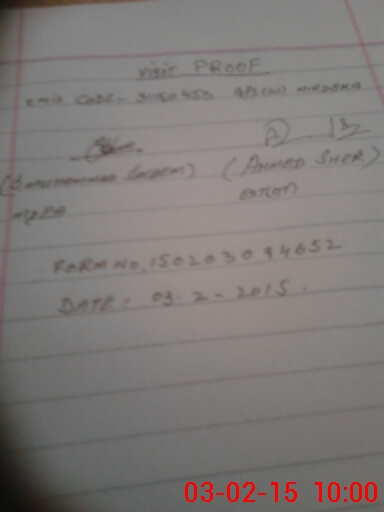 visit PROOF
emis CODE - 31150453 GPS(W) MIRZEKA
(MUHAMMAD SALEEM) (AHMED SHER)
MREA
FORM NO. 150203094652
DATE: 03.2-2015.
03-02-15 10:00